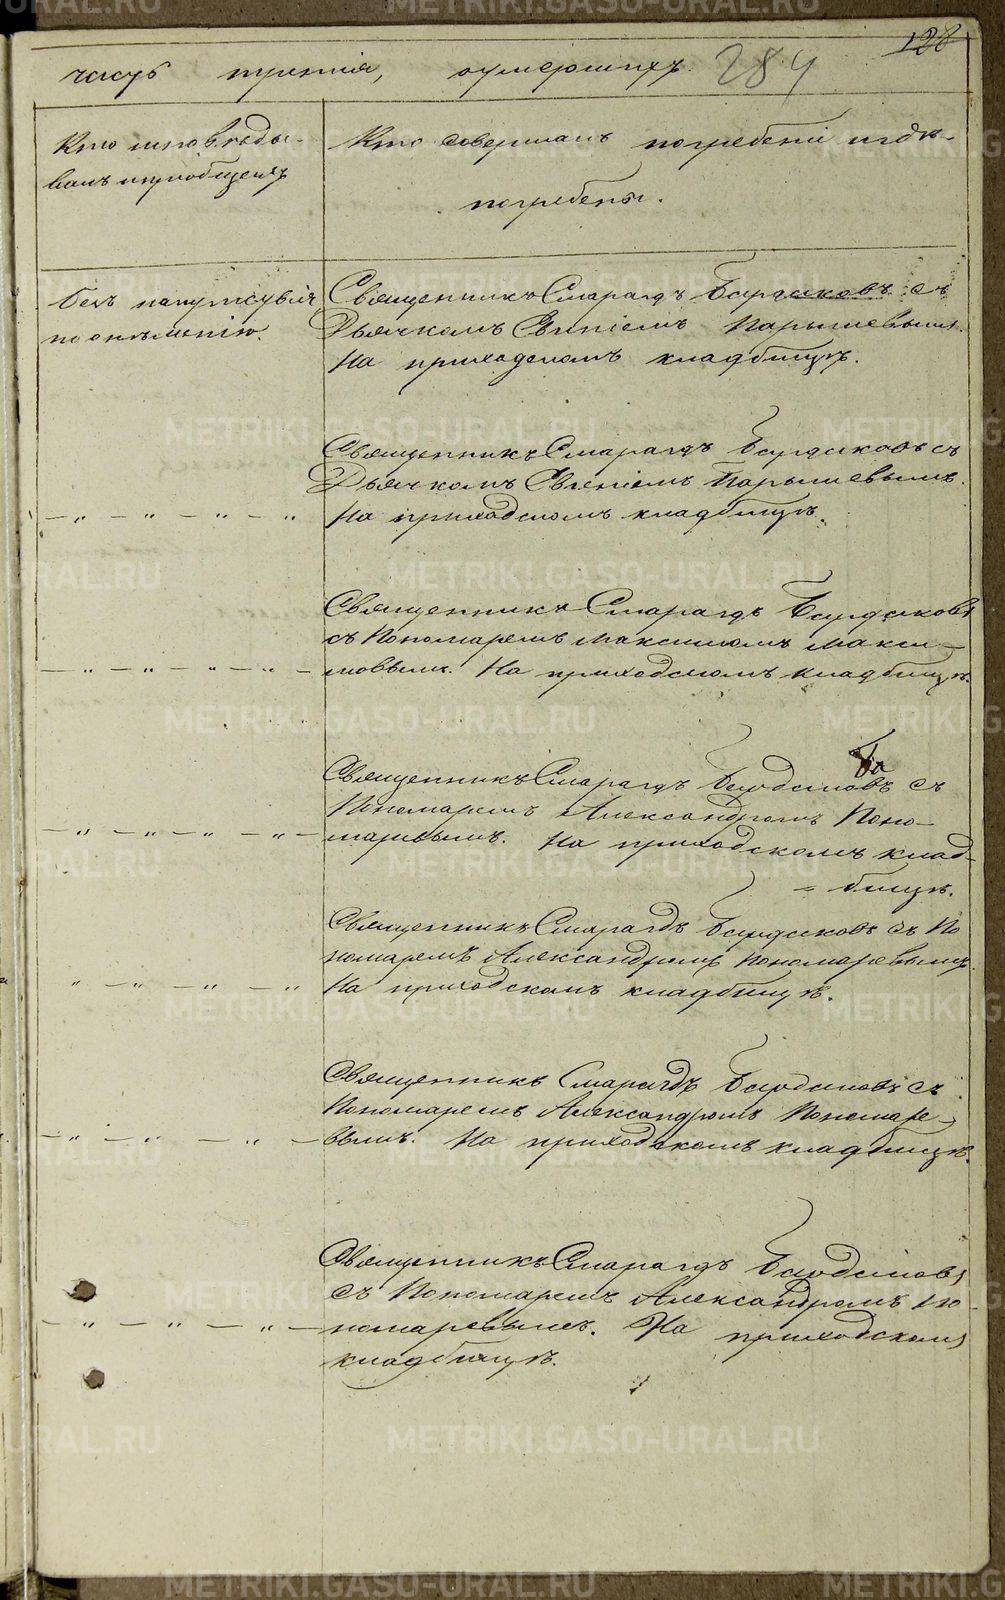 128
часть третія, о умершихъ. 284
Кто исповѣды-
валъ и приобщалъ
Кто совершалъ погребеніе и гдѣ
погребены.
безъ напутствія
Священникъ Смарагдъ Бурдаковъ съ
Дьячкомъ Парышевымъ.
На приходскомъ кладбищѣ.
Священникъ Смарагдъ Бурдаковъ съ
Дьячкомъ Парышевымъ.
— „ — „ — „ — „ На приходскомъ кладбищѣ.
Священникъ Смарагдъ Бурдаковъ
съ Пономаремъ Максимомъ Макси-
— „ — „ — „ — „ — мовымъ. На приходскомъ кладбищѣ.
Священникъ Смарагдъ съ
Пономаремъ Александромъ Поно-
— „ — „ — „ — „ — маревымъ. На приходскомъ клад-
= бищѣ.
Священникъ Смарагдъ Бурдаковъ съ По
номаремъ Александромъ Пономаревымъ.
„ — „ — „ — „ На приходскомъ кладбищѣ.
Священникъ Смарагдъ Бурдаковъ съ
Пономаремъ Александромъ Пономаре-
— „ — „ — „ — вымъ. На приходскомъ кладбищѣ.
Священникъ Смарагдъ Бурдаковъ
съ Пономаремъ Александромъ По-
— „ — „ — „ — номаревымъ. На приходскомъ
кладбищѣ.
METRIKI.GASO-URAL.RU